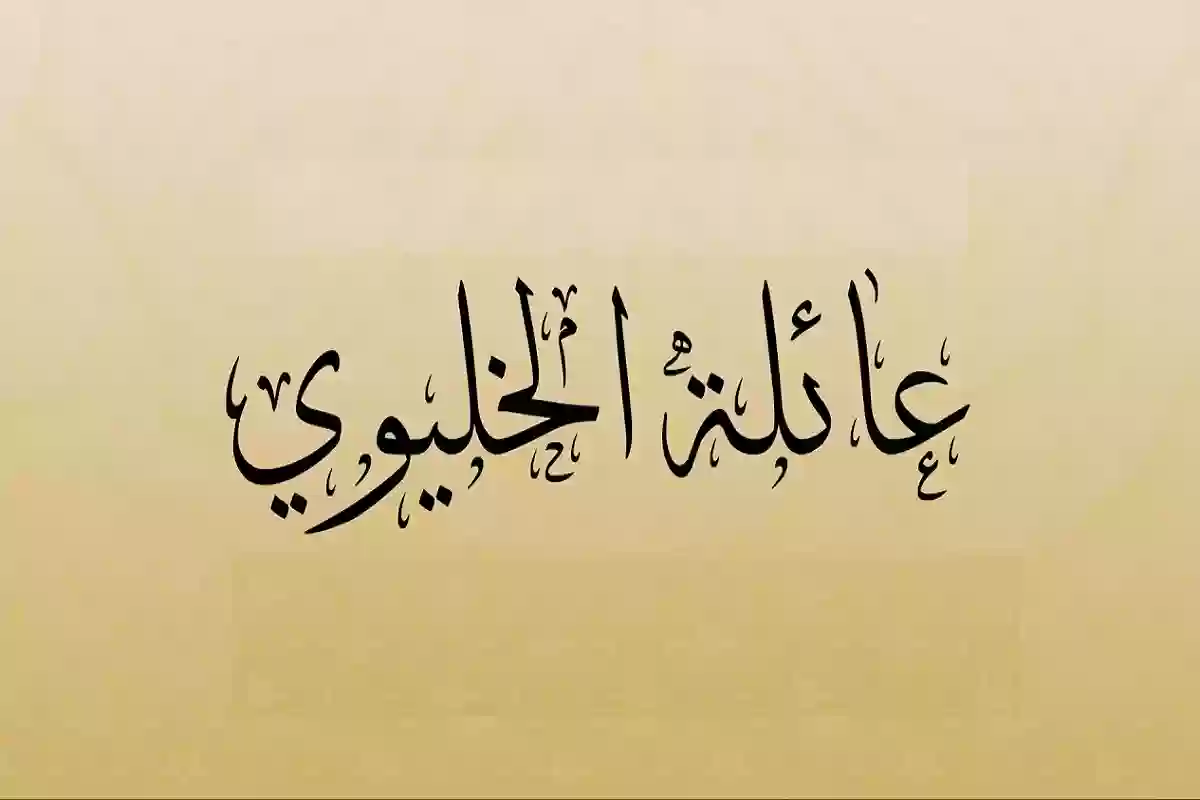 عائلة الخليوي